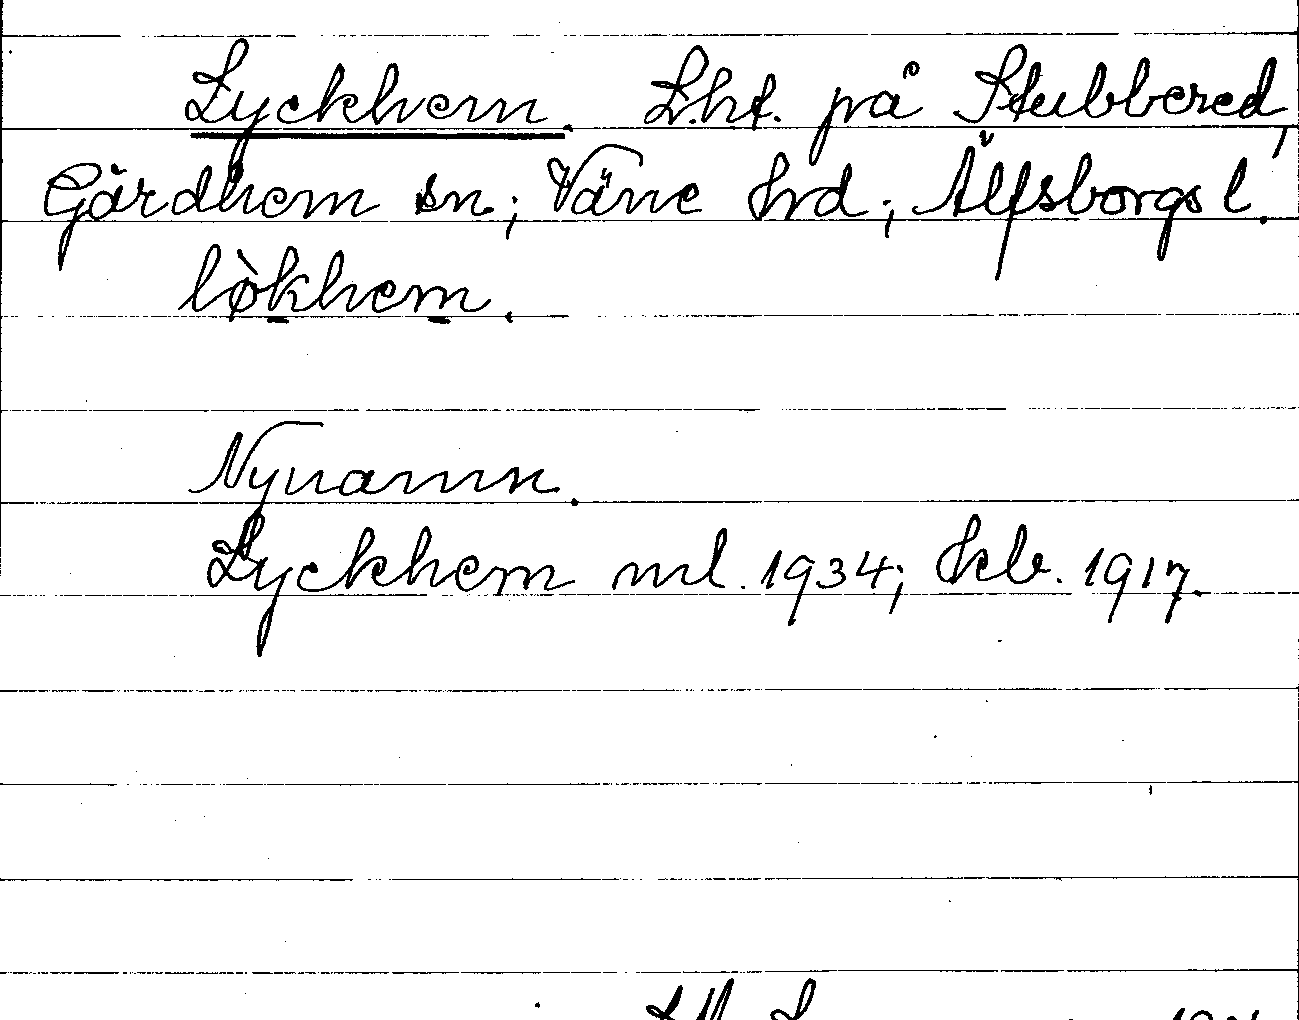 Lyckhem. L.ht. på Stubbered,
Gärdhem sn.; Väne hrd; Älfsborgs l.
lø̀khem.
Nynamn.
Lyckhem ml. 1934; hkb. 1917.